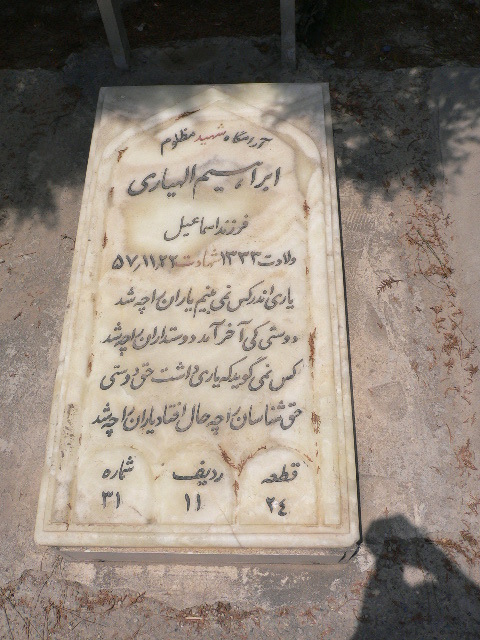 آرامگاه شهید مظلوم
ابراهیم الهیاری
فرزند اسماعیل
ولادت ۱۳۳۳ شهادت ۵۷٫۱۱٫۲۲
یاری اندر کس نمی بینیم یاران را چه شد
دوستی کی آخر آمد دوستداران را چه شد
کس نمی گوید که یاری داشت حق دوستی
حق شناسان را چه حال افتاد یاران را چه شد
قطعه ردیف شماره
۲۴ ۱۱ ۳۱